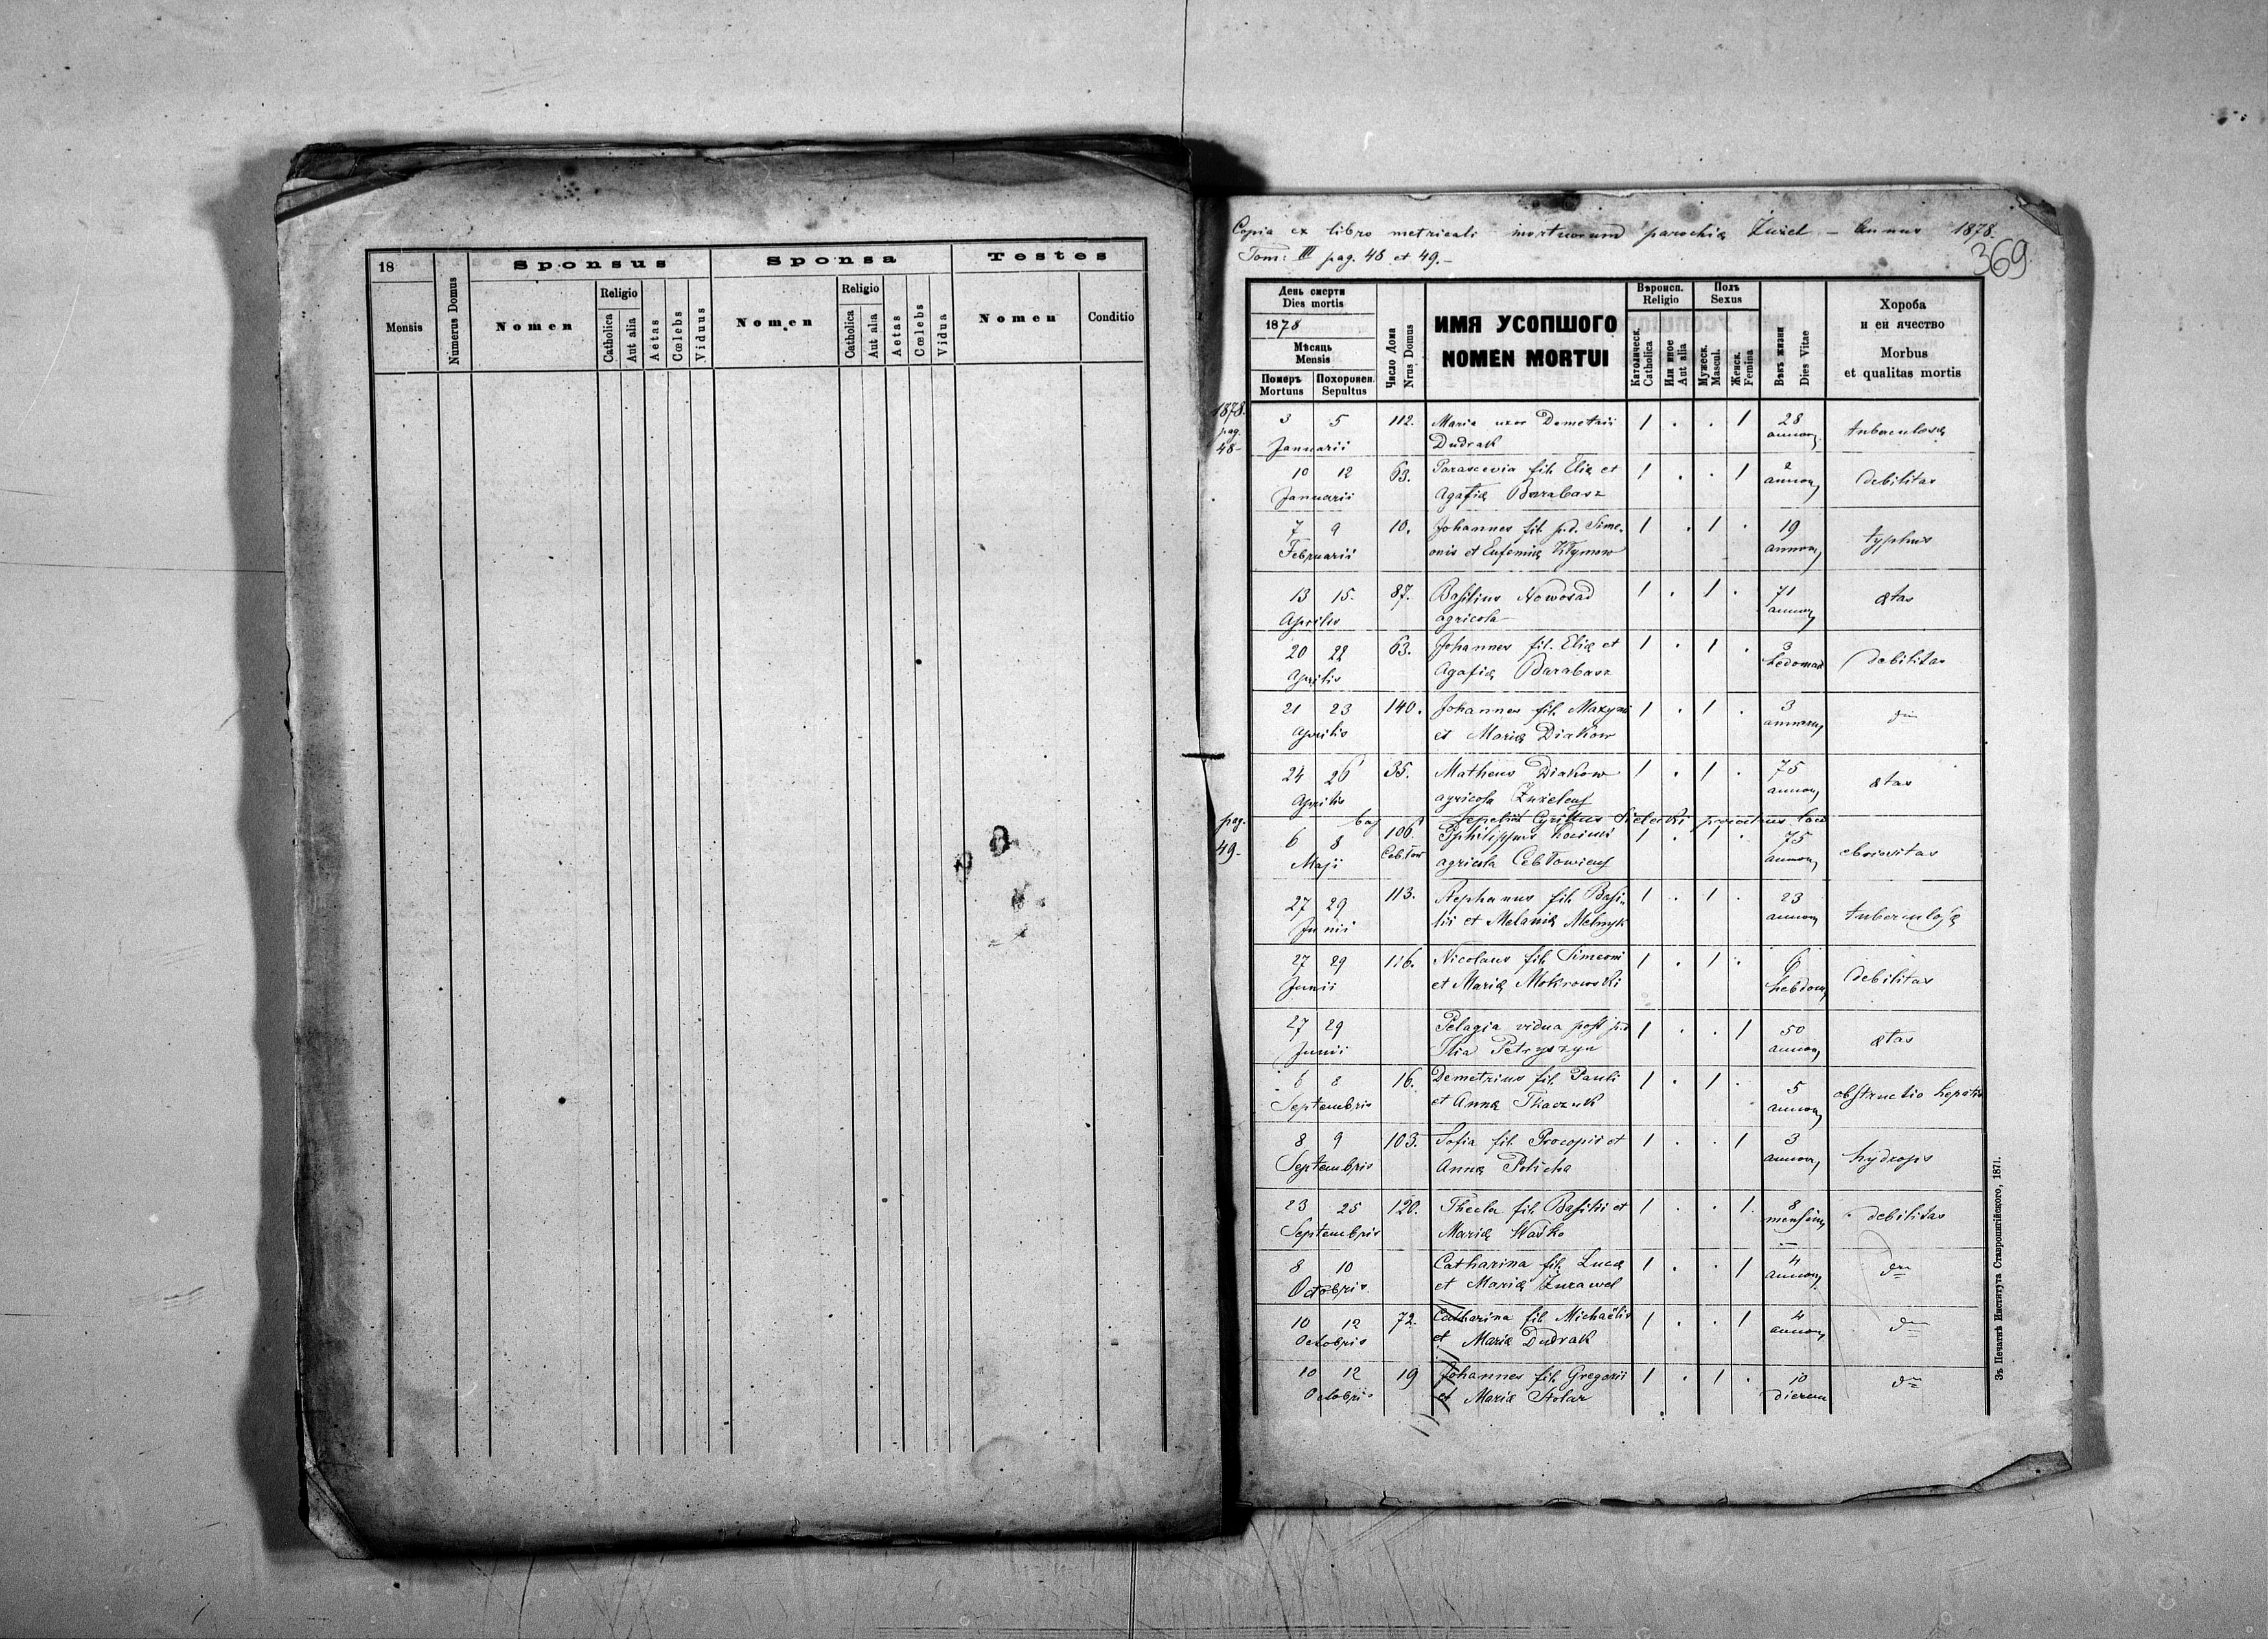 18
Mensis
Numerus Domus
Sponsus
Nomen
Religio
Catholica
Aut alia
Aetas
Cœlebs
Viduus
Sponsa
Nomen
Religio
Catholica
Aut alia
Aetas
Cœlebs
Vidua
Testes
Nomen
Conditio
Copia ex libro metricali mortuorum parochiæ Żużel – Annus 1878.
Tom: III pag. 48 et 49.–
369
День смерти
Dies mortis
1878
Мѣсяць
Mensis
Померъ
Mortuus
Похоронен.
Sepultus
Число Дома
Nrus Domus
ИМЯ УСОПШОГО
NOMEN MORTUI
Вѣроисп.
Religio
Католическ.
Catholica
Или иное
Aut alia
Полъ
Sexus
Мужеск.
Mascul.
Женск.
Femina
Вѣкъ жизни
Dies Vitae
Хороба
и еи ячество
Morbus
et qualitas mortis
1878.
pag.
48-
3 5 112. Maria uxor Demetrii 1 . . 1 28 tuberculosæ
Januarii Dudrak annor.
10 12 63. Parascevia fil. Eliæ et 1 . . 1 2 debilitas
Januarii Agafiæ Barabasz annor.
7 9 10. Johannes fil. p.d. Sime- 1 . 1 . 19 typhus
Februarii onis et Eufemiæ Kłymow annor.
13 15. 87. Basilius Nowosad 1 . 1 . 71 ætas
Aprilis agricola annor.
20 22 63. Johannes fil. Eliæ et 1 . 1 . 3 debilitas
Aprilis Agafiæ Barabasz hedomad
21 23 140. Johannes fil. Maxymi 1 . 1 . 3
Aprilis et Mariæ Diakow annorum
24 26 35. Matheus Diakow 1 . 1 . 75 ætas
Aprilis agricola Żużelens annor.
pag.
49-
sepelivit Cyrillus Sielecki
6 8 106. Philippus 1 . . 75 ebriositas
Maji Cebłow agricola Cebłowiens annor.
27 29 113. Stephanus fil. Basi- 1 . 1 . 23 tuberculosæ
Junii lii et Melaniæ Melnyk annor.
27 29 116. Nicolaus fil. Simeoni 1 . 1 . 6 debilitas
Junii et Mariæ Mokrowski hebdom.
27 29 Pelagia vidua post p.d. 1 . . 1 50 ætas
Junii Ilia Petryszyn annor.
6 8 16. Demetrius fil. Pauli 1 . 1 . 5 obstructio hepatis
Septembris et Annæ Tkaczuk annor.
8 9 103. Sofia fil. Procopii et 1 . . 1 3 hydrops
Septembris Annæ Policha annor.
23 25 120. Thecla fil. Basilii et 1 . . 1 8 debilitas
Septembris Mariæ Waśko mensium
8 10 Catharina fil. Lucæ 1 . . 1 4 dto
Octobris. et Mariæ Żurawel annor.
10 12 72. Catharina fil. Michaëlis 1 . . 1 4 dto
Octobris et Mariæ Dudrak annor.
10 12 19 Johannes fil. Gregorii 1 . 1 . 10 dto
Octobris et Mariæ Stolar dierum
Зъ Печатнѣ Института Ставропигійского, 1871.